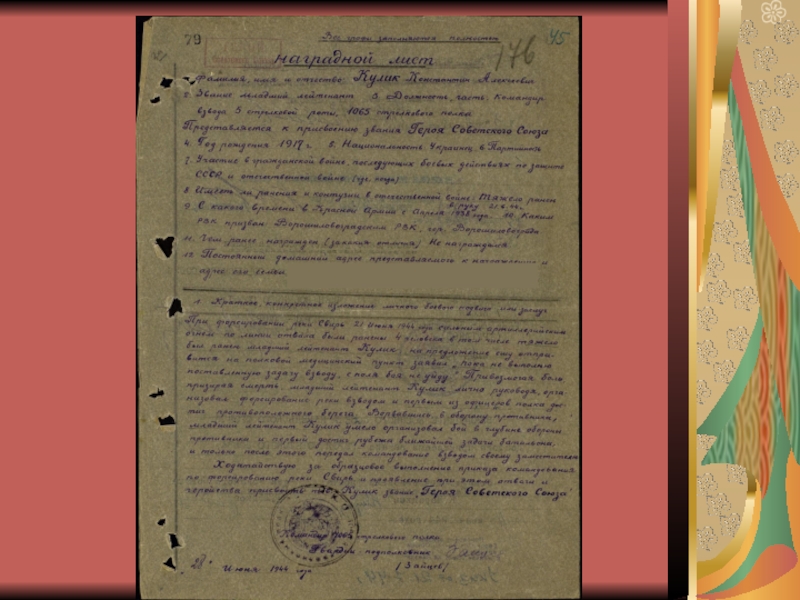 79
Все графы заполняются полностью
45
176
наградной лист
1. Фамилия, имя и отчество Кулик Константин Алексеевич
2. Звание младший лейтенант 3 Должность, часть. Командир
взвода 5 стрелковой роты, 1065 стрелкового полка
Представляется к присвоению звания Героя Советского Союза
4. Год рождения 1917 г. 5. Национальность Украинец 6.
7. Участие в гражданской войне, последующих боевых действиях по защите
СССР и отечественной войне (где, когда)
8. Имеет ли ранения и контузии в отечественной войне: Тяжело ранен
9. С какого времени в Красной Армии с Апреля 10. Каким
РВК призван Ворошиловградским РВК, гор. Ворошиловград
11. Чем ранее награжден (за какие отличия) Не награждался
12. Постоянный домашний адрес представляемого к награждению и
адрес его семьи.
1. Краткое, конкретное изложение личного боевого подвига или заслуг
При форсировании реки Свирь 21 Июня 1944 года сильным артиллерийским
огнем по линии отвала были ранены 4 человека в том числе тяжело
был ранен младший лейтенант Кулик, на предложение ему отпра-
вится на полковой медицинский пункт заявил „пока не выполню
поставленную задачу взводу, с поля боя не уйду". Превозмогая боль
призирая смерть, младший лейтенант Кулик лично руководя, орга
низовал форсирование реки взводом и первым из офицеров полка дос-
тиг противоположного берега. Ворвавшись в оборону противника,
младший лейтенант Кулик умело организовал бой в глубине обороны
противника и первый достиг рубежа ближайшей задачи батальона.
и только после этого передал командование взводом своему заместителю
Ходатайствую за образцовое выполнение приказа командования
по форсированию реки Свирь и проявление при этом отваги и
геройства присвоить тов. Кулик звание „Героя Советского Союза"
Командир 1065 стрелкового полка
Гвардии подполковник
(Зайцев)
Июня 1944 года